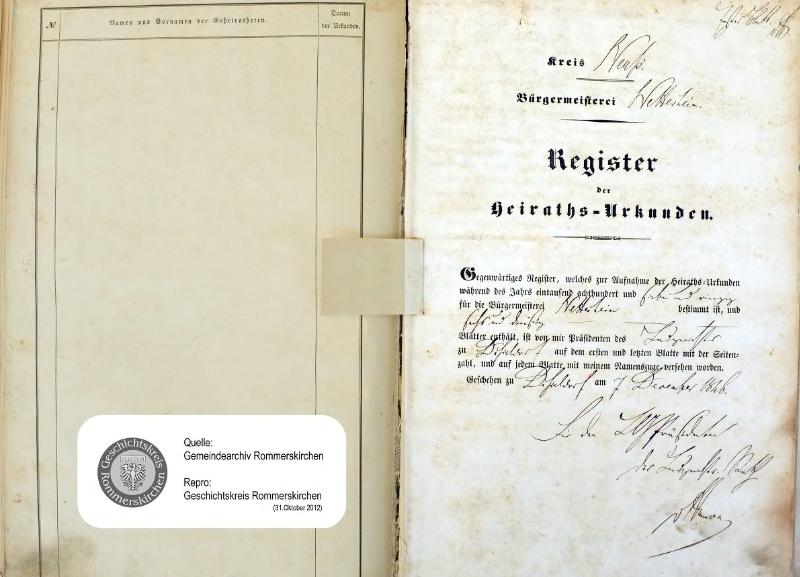 №
Namen und Vornamen der Geheiratheten.
Datum
der Urkunden.
Geschichtskreis
Rommerskirchen
Quelle:
Gemeindearchiv Rommerskirchen
Repro:
Geschichtskreis Rommerskirchen
(31.Oktober 2012)
Erstes Blatt.
Kreis Neuß.
Bürgermeisterei
Register
der
Heiraths-Urkunden.
Gegenwärtiges Register, welches zur Aufnahme der Heiraths-Urkunden
während des Jahrs eintausend achthundert und sieben und vierzig
für die Bürgermeisterei bestimmt ist, und
sechs und dreißig
Blätter enthält, ist von mir Präsidenten des Landgerichts
zu Düsseldorf auf dem ersten und letzten Blatte mit der Seiten-
zahl, und auf jedem Blatte mit meinem Namenszuge versehen worden.
Geschehen zu Düsseldorf am 7 Dezember 1846.
Für den Präsidenten
der Landgerichts